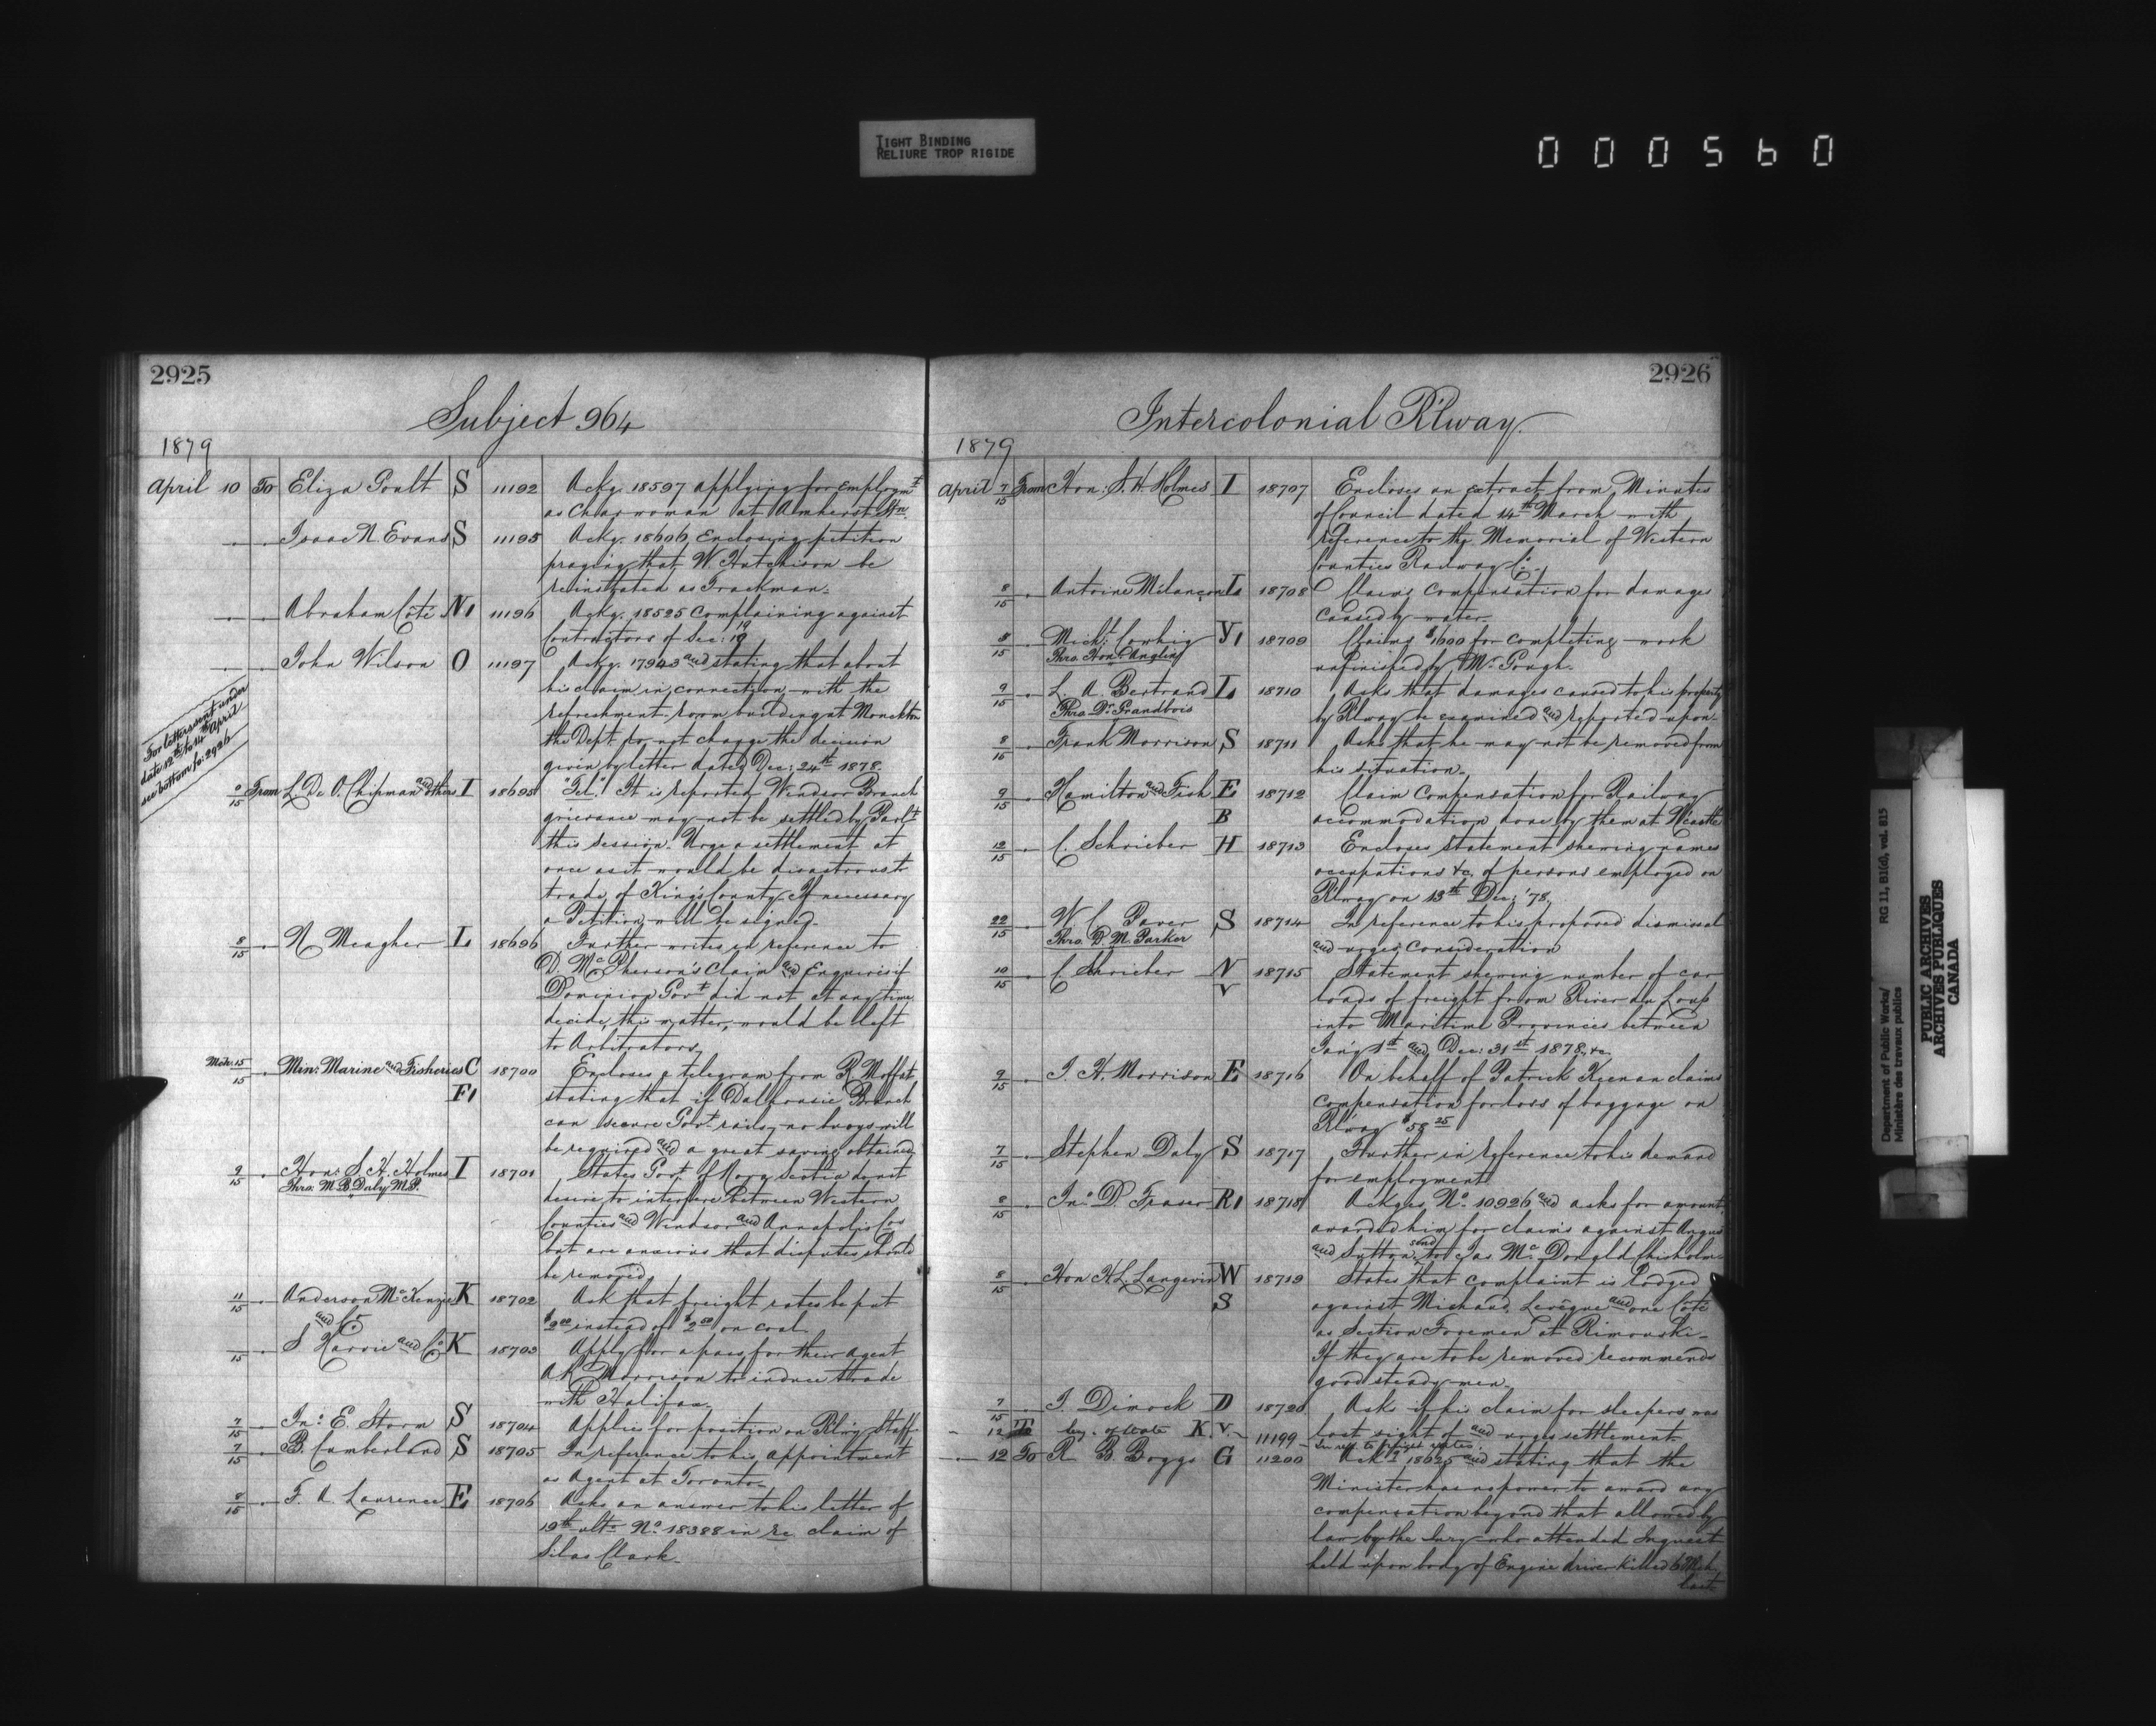 TIGHT BINDING
RELIURE TROP RIGIDE
000560
2925
Subject 964
1879
April 10 To Eliza Goult S 11192 Ackg. 18597 applying for employmt
as Charwoman at Amherst Stn.
Isaac N. Evans S 11195 Ackg. 18606 Enclosing petition
praying that W. Hutchison be
reinstated as Trackman.
Abraham Coté N, 11196 Ackg. 18525 Complaining against
Contractors of Sec: 19
John Wilson O 11197 Ackg. 17943 and stating that about
his claim in connection with the
refreshment room building at Monckton
the Dept do not change the decision
given by letter dated Dec: 24th 1878.
For letters sent under
date 12th to 14th April
see bottom fo: 2926
9/15 From L. De V. Chipman and others I 18695 "Tel." It is reported Windsor Branch
grievance may not be settled by Parlt
this session. Urge a settlement at
once as it would be disastrous to
trade of King's County. If necessary
a Petition will be signed.
8/15 N Meagher L 18696 Further writes in reference to
D. McPherson's claim and Enquires if
Dominion Govt did not at any time
decide this matter, would be left
to Arbitrators.
Mch: 15/15 Min: Marine and Fisheries C 18700 Encloses a telegram from R Moffat
F, stating that if Dalhousie Branch
can secure Govt rails, no buoys will
be required and a great saving obtained
9/15 Hon: S. H. Holmes I 18701 States Govt of Nova Scotia do not
Thro. M. B. Daly M.P. desire to interfere between Western
Counties and Windsor and Annapolis Cos
but are anxious that disputes should
be removed
11/15 Anderson McKenzie K 18702 Ask that freight rates be put
and Co. instead of on coal
15 S Harvie and Co K 18703 Apply for a pass for their agent
A K Morrison to induce trade
with Halifax.
7/15 Jno: E. Storm S 18704 Applies for position on Rlwy Staff.
7/15 B. Cumberland S 18705 In reference to his appointment
as Agent at Toronto.
8/15 F. A. Laurence E 18706 Asks an answer to his letter of
19th ulto No 18388 in re claim of
Silas Clark.
2926
Intercolonial R'lway.
1879
April 7/15 From Hon: S. H. Holmes I 18707 Encloses an extract from Minutes
of Council dated 14th March with
reference to the Memorial of Western
Counties Railway Co.
8/15 Antoine Milançon L, 18708 Claims Compensation for damages
caused by water.
8/15 Michl: Cowhig Y, 18709 Claims $1600 for completing work
Thro. Hon: Anglin unfinished by Mr Gough.
9/15 L. A. Bertrand L, 18710 Asks that damages caused to his property
Thro. Dr. Grandbois by Rlway be examined and reported upon.
8/16 Frank Morrison S 18711 Asks that he may not be removed from
his situation.
9/15 Hamilton and Fish E 18712 Claim Compensation for Railway
B accommodation done by them at Ncastle
12/15 C. Schrieber H 18713 Encloses statement shewing names
occupations &c. of persons employed on
R'lway on 13th Dec: '78.
22/15 W. C. Paver S 18714 In reference to his proposed dismissal
Thro. D. M. Parker and urges consideration
10/15 C. Schrieber N 18715 Statement shewing number of car
V loads of freight from River du Loup
into Maritime Provinces between
Jany 1st and Dec: 31st 1878, &c.
9/15 J. H. Morrison E 18716 On behalf of Patrick Keenan claims
compensation for loss of baggage on
R'lway $58 25
7/15 Stephen Daly S 18717 Further in reference to his demand
for employment
8/15 Jno D. Fraser R, 18718 Ackges No. 10926 and asks for amount
awarded him for claims against Angus
and Sutton, send to Jas McDonald Chisholm.
8/15 Hon H. L. Langevin W 18719 States that complaint is lodged
S against Michaud, Levêque and one Coté
as Section Foremen at Rimouski.
If they are to be removed recommends
good steady men.
7/15 J. Dimock D 18720 Asks if his claim for sleepers was
lost sight of and urges settlement
12 To Secy. of State K. V. 11199 In ref. to freight rates.
12 To R B. Boggs G 11200 Ackg 18625 and stating that the
Minister has no power to award any
compensation beyond that allowed by
law by the Jury who attended Inquest
held upon body of Engine driver killed 6 Mch.
last
Department of Public Works/
Ministère des travaux publics
RG 11, B1(d), vol. 815
PUBLIC ARCHIVES
ARCHIVES PUBLIQUES
CANADA